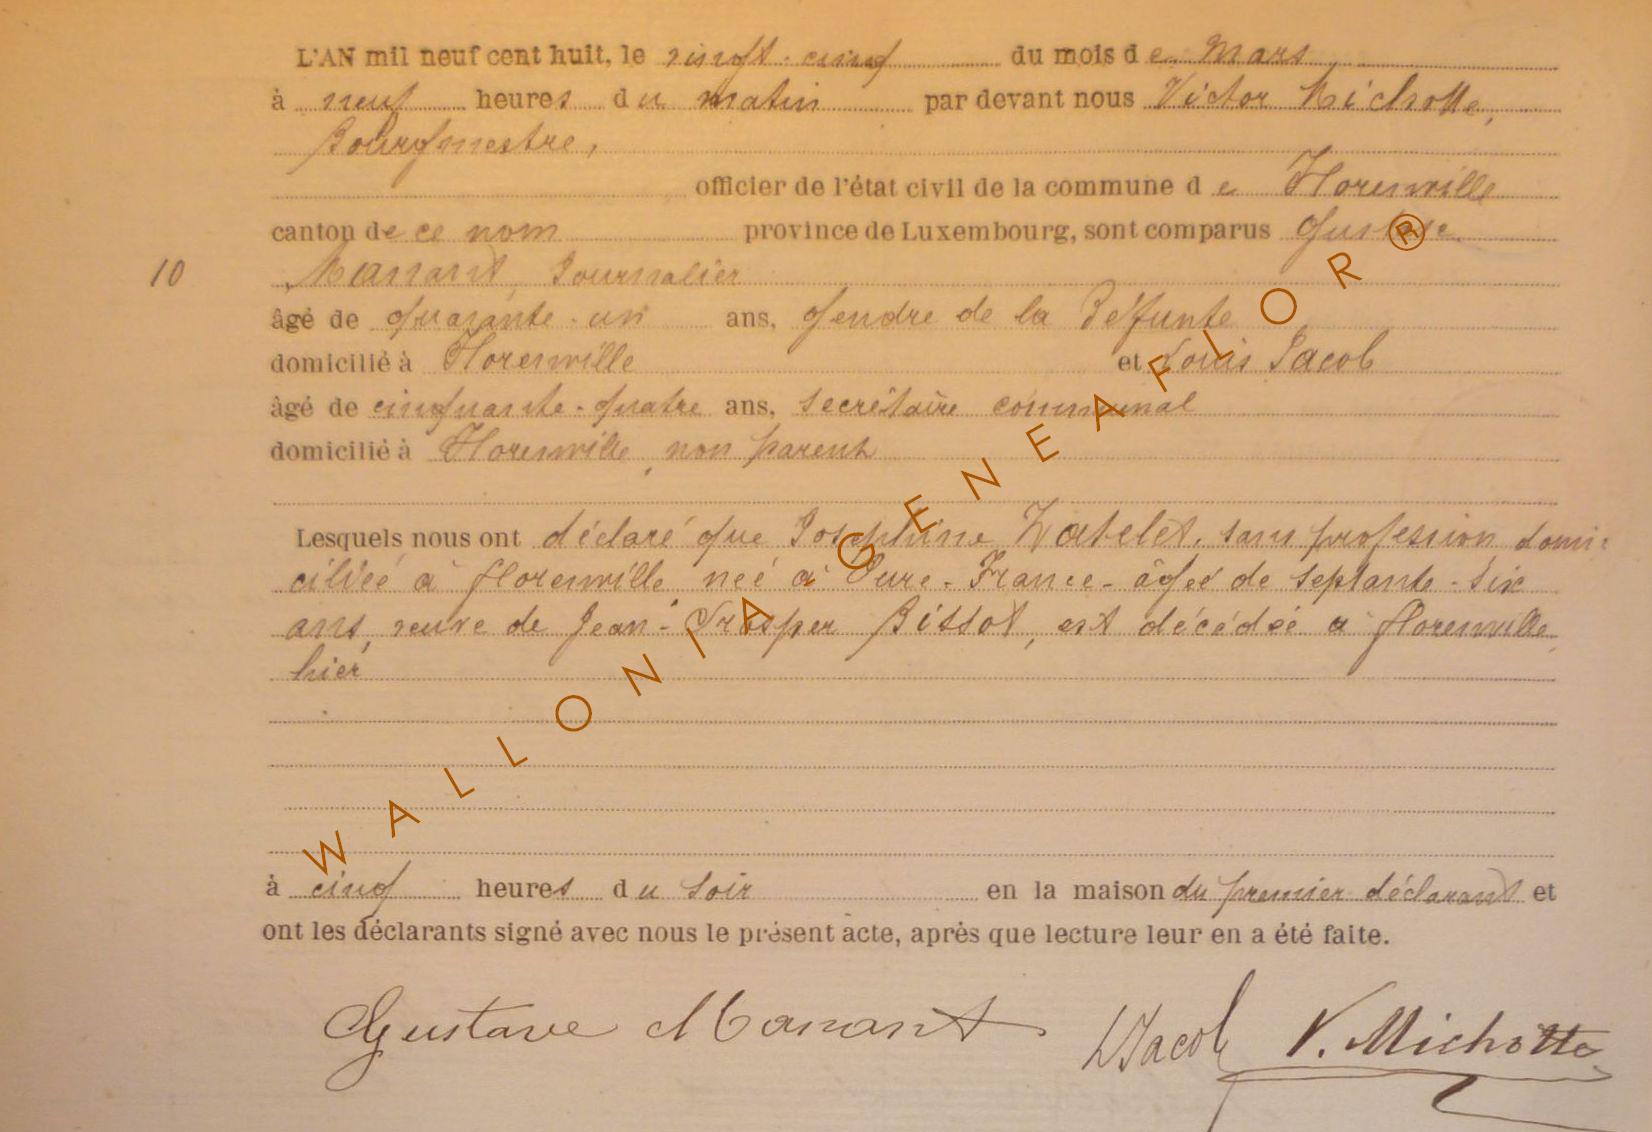 L'AN mil neuf cent huit, le vingt-cinq du mois de Mars
à neuf heures du matin par devant nous Victor Michotte,
Bourgmestre,
officier de l'état civil de la commune de Florenville
canton de ce nom province de Luxembourg, sont comparus Gustave
10 Manant, Journalier
âgé de quarante-un ans, gendre de la Défunte
domicilié à Florenville et Louis Jacob
âgé de cinquante-quatre ans, secrétaire communal
domicilié à Florenville, non parent
Lesquels nous ont déclaré que Joséphine Watelet, sans profession domi-
ciliée à florenville neé à Eure-France- âgée de septante-six
ans, veuve de Jean-Prosper Bissot, est décédée à florenville,
hier
à cinq heures du soir en la maison du premier déclarant et
ont les déclarants signé avec nous le présent acte, après que lecture leur en a été faite.
Gustave Manant LJacob V. Michotte
WALLONIA GENEAFLOR®